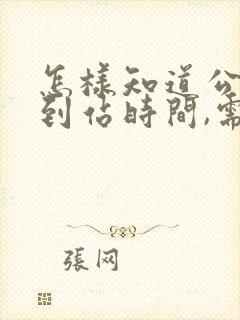 怎樣知道公
到站時間,需
張网